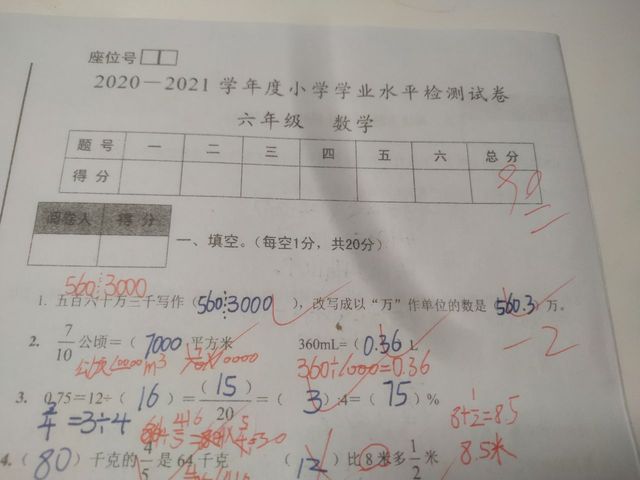 座位号
2020—2021 学年度小学学业水平检测试卷
六年级 数学
题号 一 二 三 四 五 六 总分
得分 90
阅卷人 得分
一、填空。（每空1分，共20分）
560⋮3000
1. 五百六十万三千写作（560⋮3000），改写成以“万”作单位的数是（560.3）万。
-2
2. 7/10 公顷=（7000）平方米 360mL=（0.36）L
360÷1000=0.36
3. 0.75=12÷（16）=（15）/20=（3）:4=（75）%
=3÷4
8+1/2=8.5
8.5米
4.（80）千克的 4/5 是64千克 （12）比8米多 1/2 米